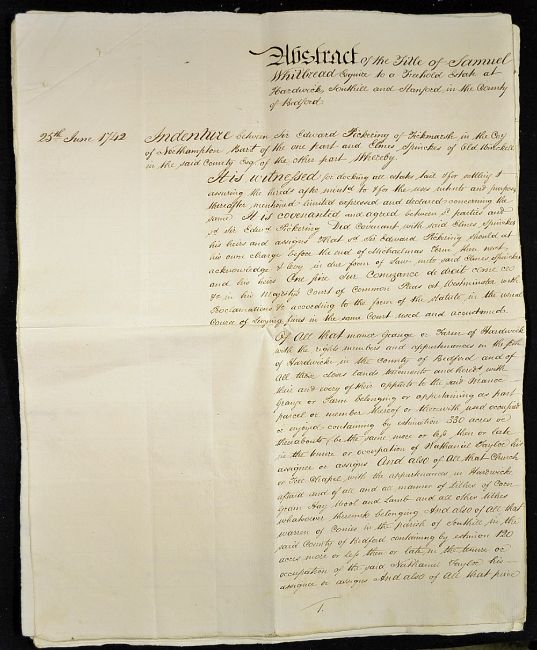 Abstract of the Title of Samuel
Whitbread Esquire to a Freehold Estate at
Hardwick, Southill and Stanford in the County
of Bedford
25th June 1742 Indenture between Sir Edward Pickering of Titchmarsh in the Coy
of Northampton Bart of the one part and Elmes Spinckes of Old
in the said County Esq. of the other part Whereby
It is witnessed for docking all estates tail & for settling &
assuring the heredts after mentd to & for the uses intents and purposes
thereafter mentioned limited expressed and declared concerning the
same It is covenanted and agreed between sd parties and
sd Sir Edwd Pickering Did Covenant with said Elmes Spinckes
his heirs and assigns That sd Sir Edward Pickering should at
his own charge before the end of Michaelmas Term then next
acknowledge & levy in due form of Law unto said Elmes Spinckes
and his heirs One fine Sur Conuzance de droit come ceo
&c in his Majestys Court of Common Pleas at Westminster with
Proclamations &c according to the form of the statute in the usual
Course of Levying fines in the same Court used and accustomed
Of All that manor Grange or Farm of Hardwick
with the rights members and appurtenances in the
of Hardwicke in the County of Bedford and of
All those closes lands tenements and heredts with
their and every of their appurts to the said Manor
Grange or Farm belonging or appertaining as part
parcel or member thereof or therewith used occupied
or enjoyed containing by estimation 330 acres or
thereabouts be the same more or less then or late
in the tenure or occupation of Nathaniel Taylor his
assignee or assigns And also of All that Church
or Free Chapel with the appurtenances in Hardwicke
afsaid and of all and all manner of tithes of Corn
Grain Hay Wool and Lamb and all other tithes
whatsoever thereunto belonging And also of All that
warren of Conies in the parish of Southill in the
said County of Bedford containing by estimon 120
acres more or less then or late in the tenure or
occupation of the said Nathaniel Taylor his
assignee or assigns And also of All that
1.